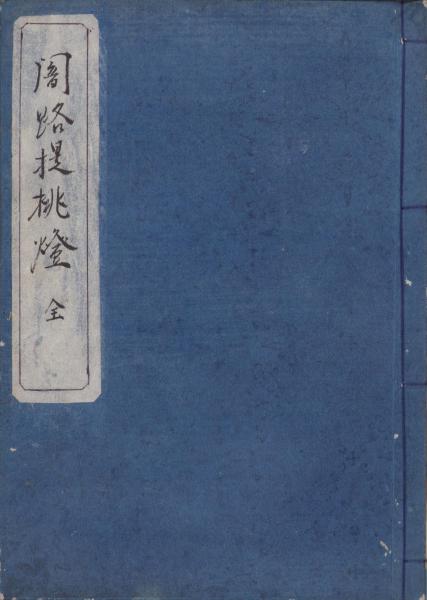 闇路提桃燈 全